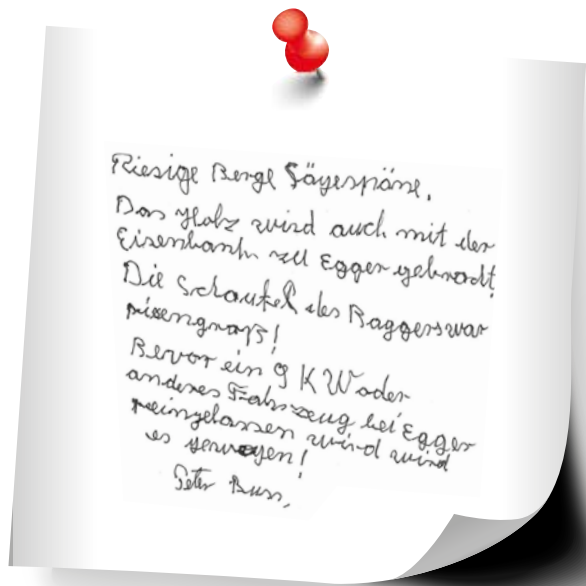 Riesige Berge Sägespäne.
Das Holz wird auch mit der
Eisenbahn zu Egger gebracht!
Die Schaufel des Baggers war
riesengroß!
Bevor ein LKW oder
anderes Fahrzeug bei Egger
reingelassen wird wird
es gewogen!
Peter